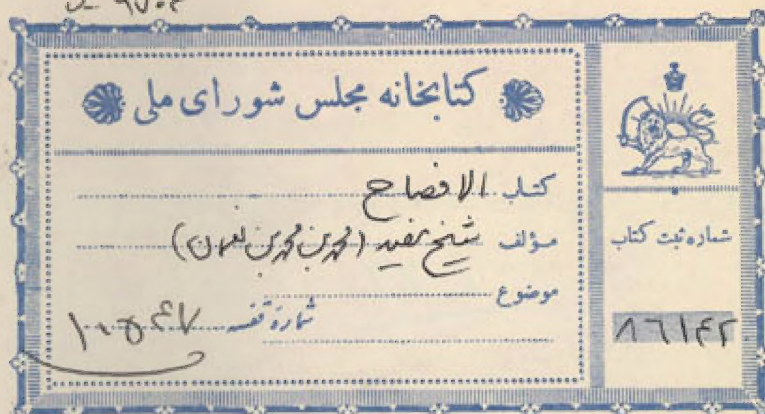 کتابخانه مجلس شورای ملی
کتاب الافصاح
مؤلف شیخ مفید (محمد بن محمد بن نعمان)
موضوع
شماره قفسه ۱۰۵۴۷
شماره ثبت کتاب
۸۶۱۴۲